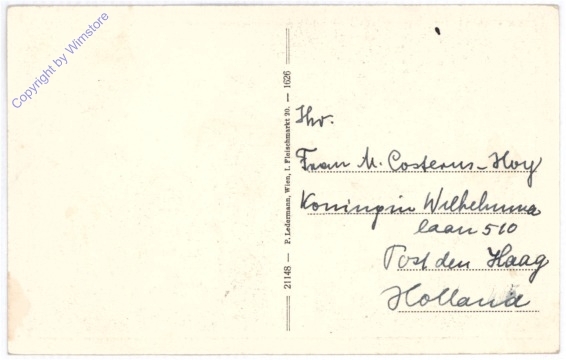 Copyright by Wimstore
21148 — P. Ledermann, Wien, I. Fleischmarkt 20. — 1626
Ihr.
Frau M. Costerus-Hoy
Koningin Wilhelmina
laan 510
Post den Haag
Holland